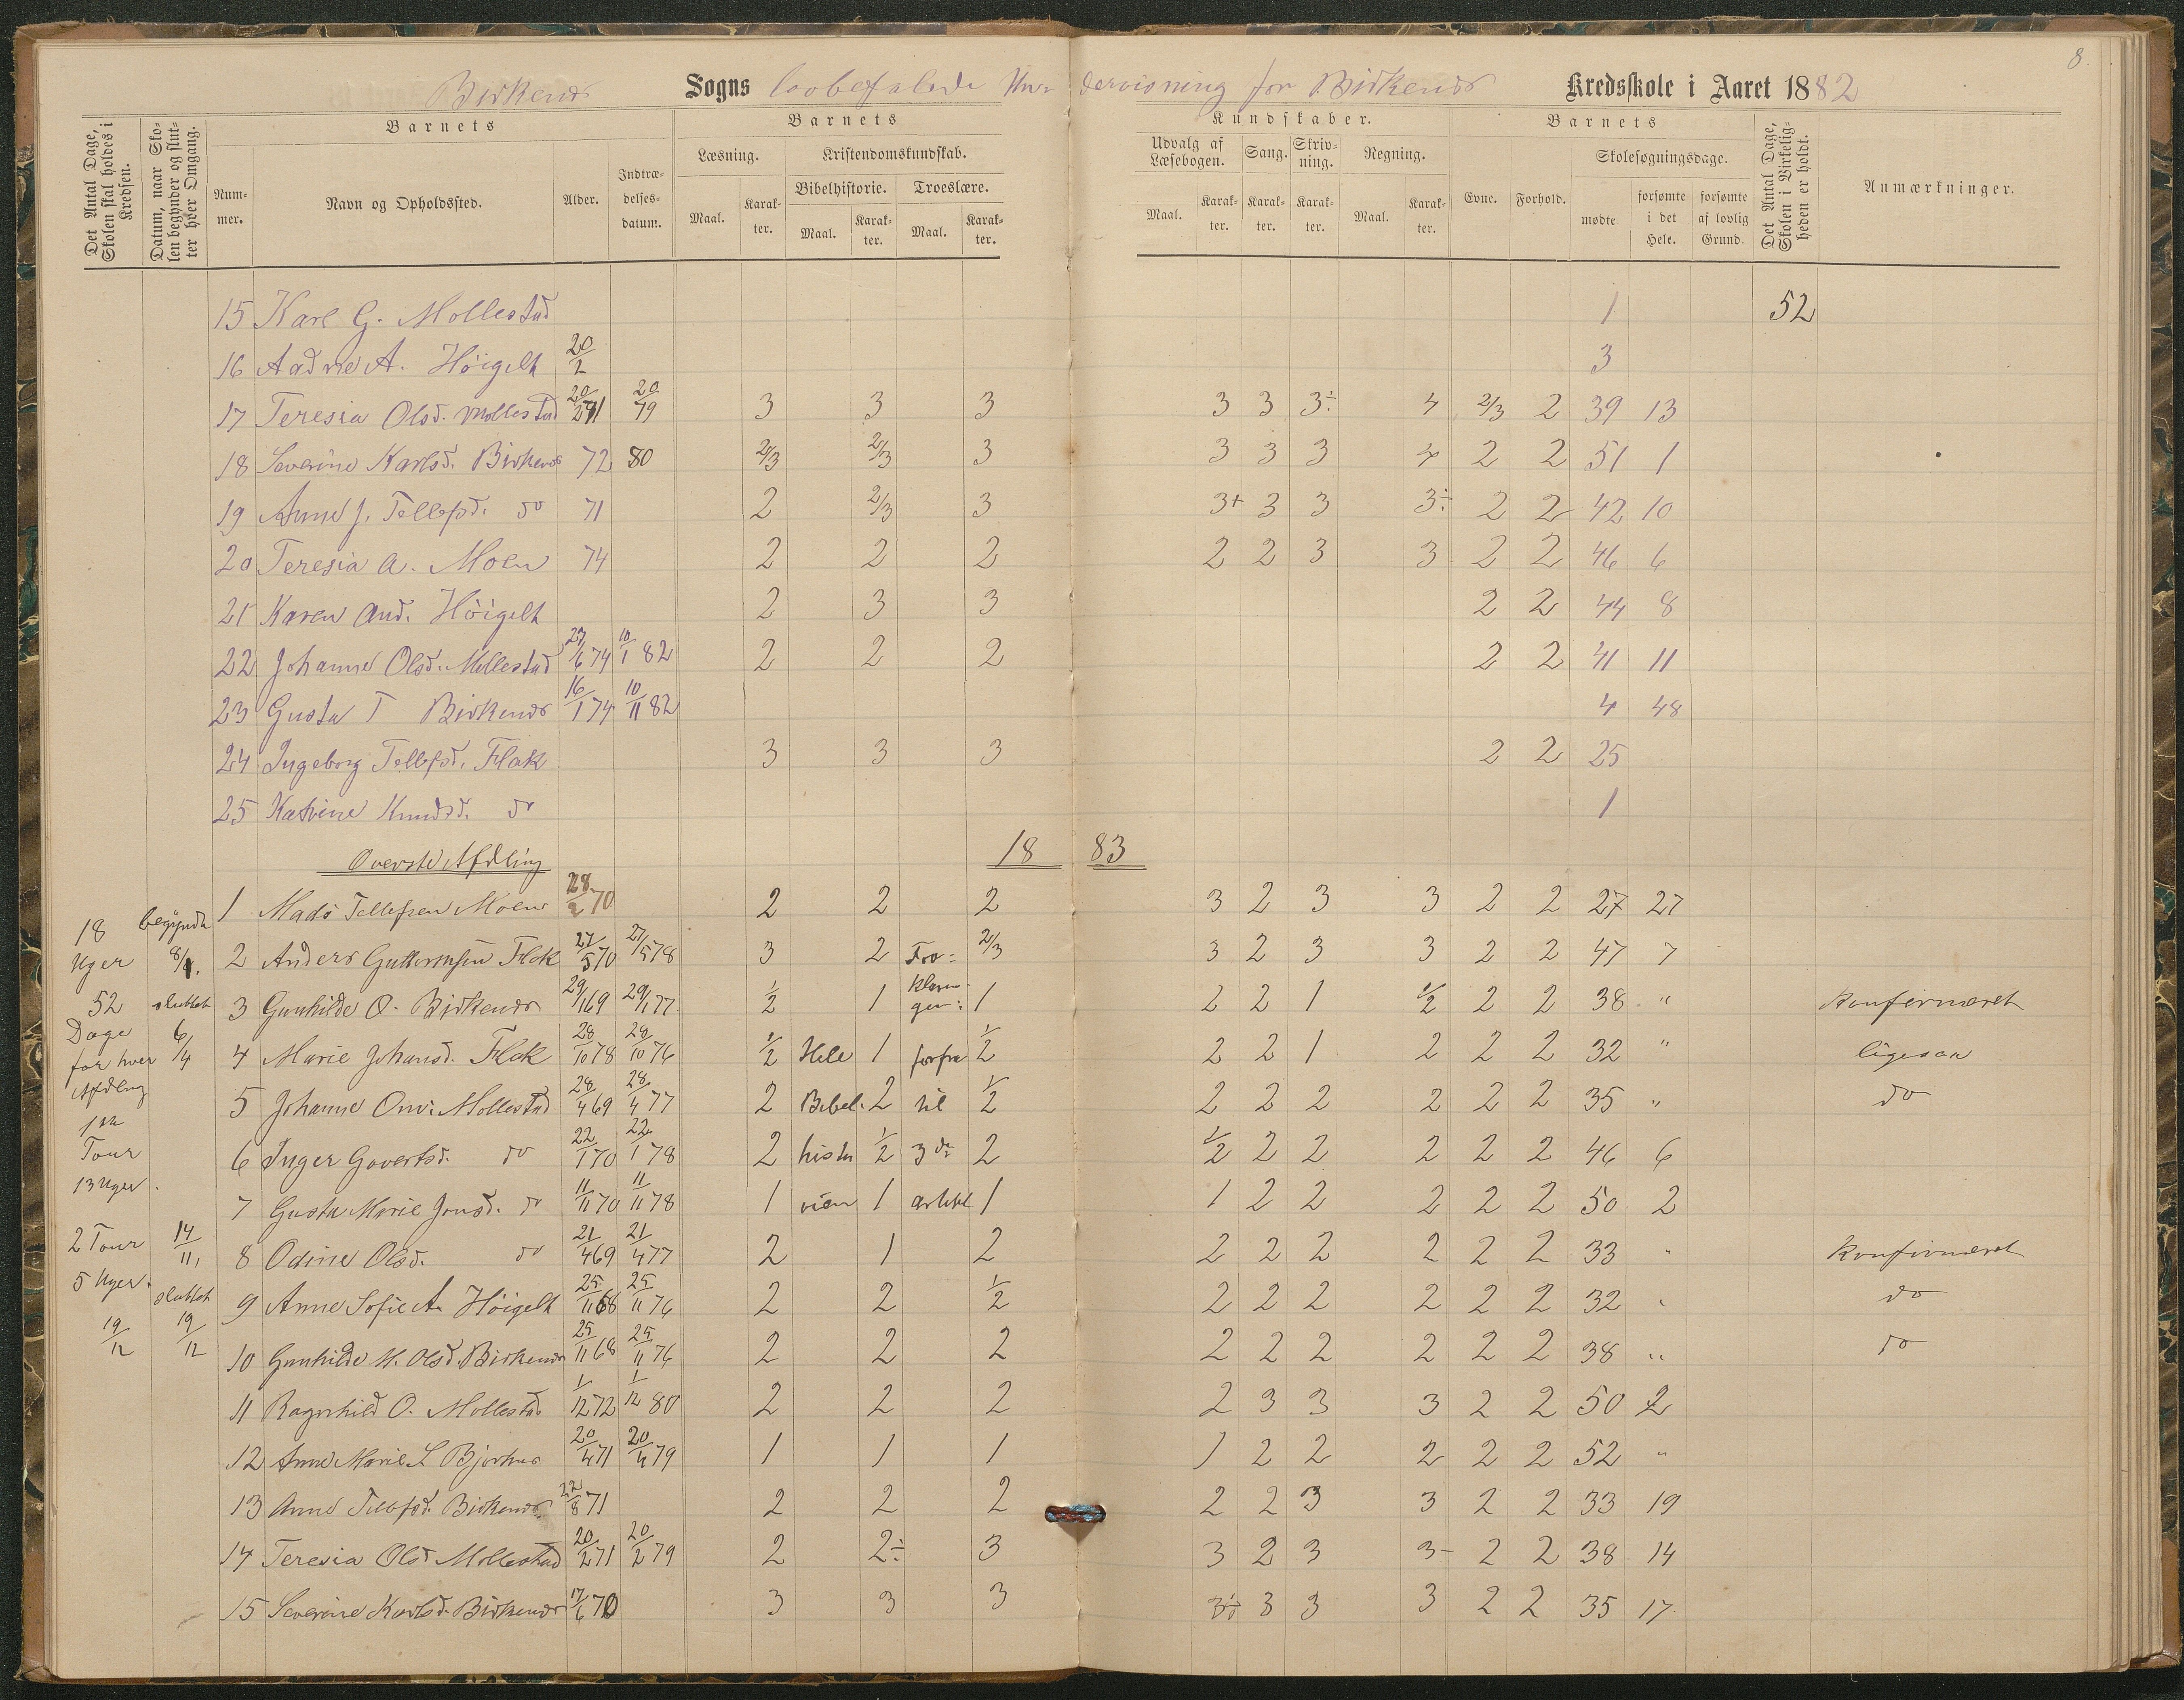 8.
Birkenes Sogns lovbefalede Undervisning for Birkenes Kredsskole i Aaret 1882
Det Antal Dage, Skolen skal holdes i Kredsen.
Datum, naar Skolen begynder og slutter hver Omgang.
Barnets
Nummer.
Navn og Opholdssted.
Alder.
Indtrædelsesdatum.
Barnets Kundskaber.
Læsning.
Maal.
Karakter.
Kristendomskundskab.
Bibelhistorie.
Maal.
Karakter.
Troeslære.
Maal.
Karakter.
Udvalg af Læsebogen.
Maal.
Karakter.
Sang.
Karakter.
Skrivning.
Karakter.
Regning.
Maal.
Karakter.
Barnets
Evne.
Forhold.
Skolesøgningsdage.
mødte
forsømte i det Hele.
forsømte af lovlig Grund.
Det Antal Dage, Skolen i Virkeligheden er holdt.
Anmærkninger.
15 Karl G. Mollestad 1 52
16 Aadne A. Höigelt 20/2 3
17 Teresia Olsd. Mollestad 20/2 71 20/79 3 3 3 3 3 3÷ 4 2/3 2 39 13
18 Severine Karlsd. Birkenes 72 80 2/3 2/3 3 3 3 3 4 2 2 51 1
19 Anne J. Tellefsd. do 71 2 2/3 3 3+ 3 3 3÷ 2 2 42 10
20 Teresia A. Moen 74 2 2 2 2 2 3 3 2 2 46 6
21 Karen And. Höigelt 2 3 3 2 2 44 8
22 Johanne Olsd. Mollestad 27/6 74 10/1 82 2 2 2 2 2 41 11
23 Gusta T Birkenes 16/1 74 10/11 82 4 48
24 Ingeborg Tellefsd. Flak 3 3 3 2 2 25
25 Katrine Knudsd. do 1
Överste Afdling 1883
1 Mads Tellefsen Moen 28/2 70 2 2 2 3 2 3 3 2 2 27 27
18 Uger begyndt 8/1.
2 Anders Guttormsen Flak 27/5 70 27/5 78 3 2 Fro= 2/3 3 2 3 3 2 2 47 7
52 sluttet
3 Gunhilde O. Birkenes 29/1 69 29/1 77 1/2 1 klaringen: 1 2 2 1 1/2 2 2 38 " konfirmeret
Dage for hver Afdling 6/4
4 Marie Johansd. Flak 28/10 78 28/10 76 1/2 Hele 1 forfra 1/2 2 2 1 2 2 2 32 " ligesaa
5 Johanne Omi. Mollestad 28/4 69 28/4 77 2 Bibel. 2 til 1/2 2 2 2 2 2 2 35 " do
1ste Tour
6 Inger Govertsd. do 22/1 70 22/1 78 2 histo 1/2 3de 2 1/2 2 2 2 2 2 46 6
13 Uger.
7 Gusta Marie Jensd. do 11/11 70 11/11 78 1 rien 1 artikel 1 1 2 2 2 2 2 50 2
2 Tour 14/11,
8 Odine Olsd. do 21/4 69 21/4 77 2 1 2 2 2 2 2 2 2 33 " konfirmeret
5 Uger. sluttet
9 Anne Sofie A. Höigelt 25/11 68 25/11 76 2 2 1/2 2 2 2 2 2 2 32 " do
19/12 19/12
10 Gunhilde M. Olsd. Birkenes 25/11 68 25/11 76 2 2 2 2 2 2 2 2 2 38 " do
11 Ragnhild O. Mollestad 1/12 72 1/12 80 2 2 2 2 3 3 3 2 2 50 2
12 Anne Marie L Bjorhus 20/4 71 20/4 79 1 1 1 1 2 2 2 2 2 52 "
13 Anne Tellefsd. Birkenes 22/8 71 2 2 2 2 2 3 3 2 2 33 19
14 Teresia Olsd Mollestad 20/2 71 20/2 79 2 2÷ 3 3 2 3 3- 2 2 38 14
15 Severine Karlsd. Birkenes 17/6 70 3 3 3 3÷ 3 3 3 2 2 35 17